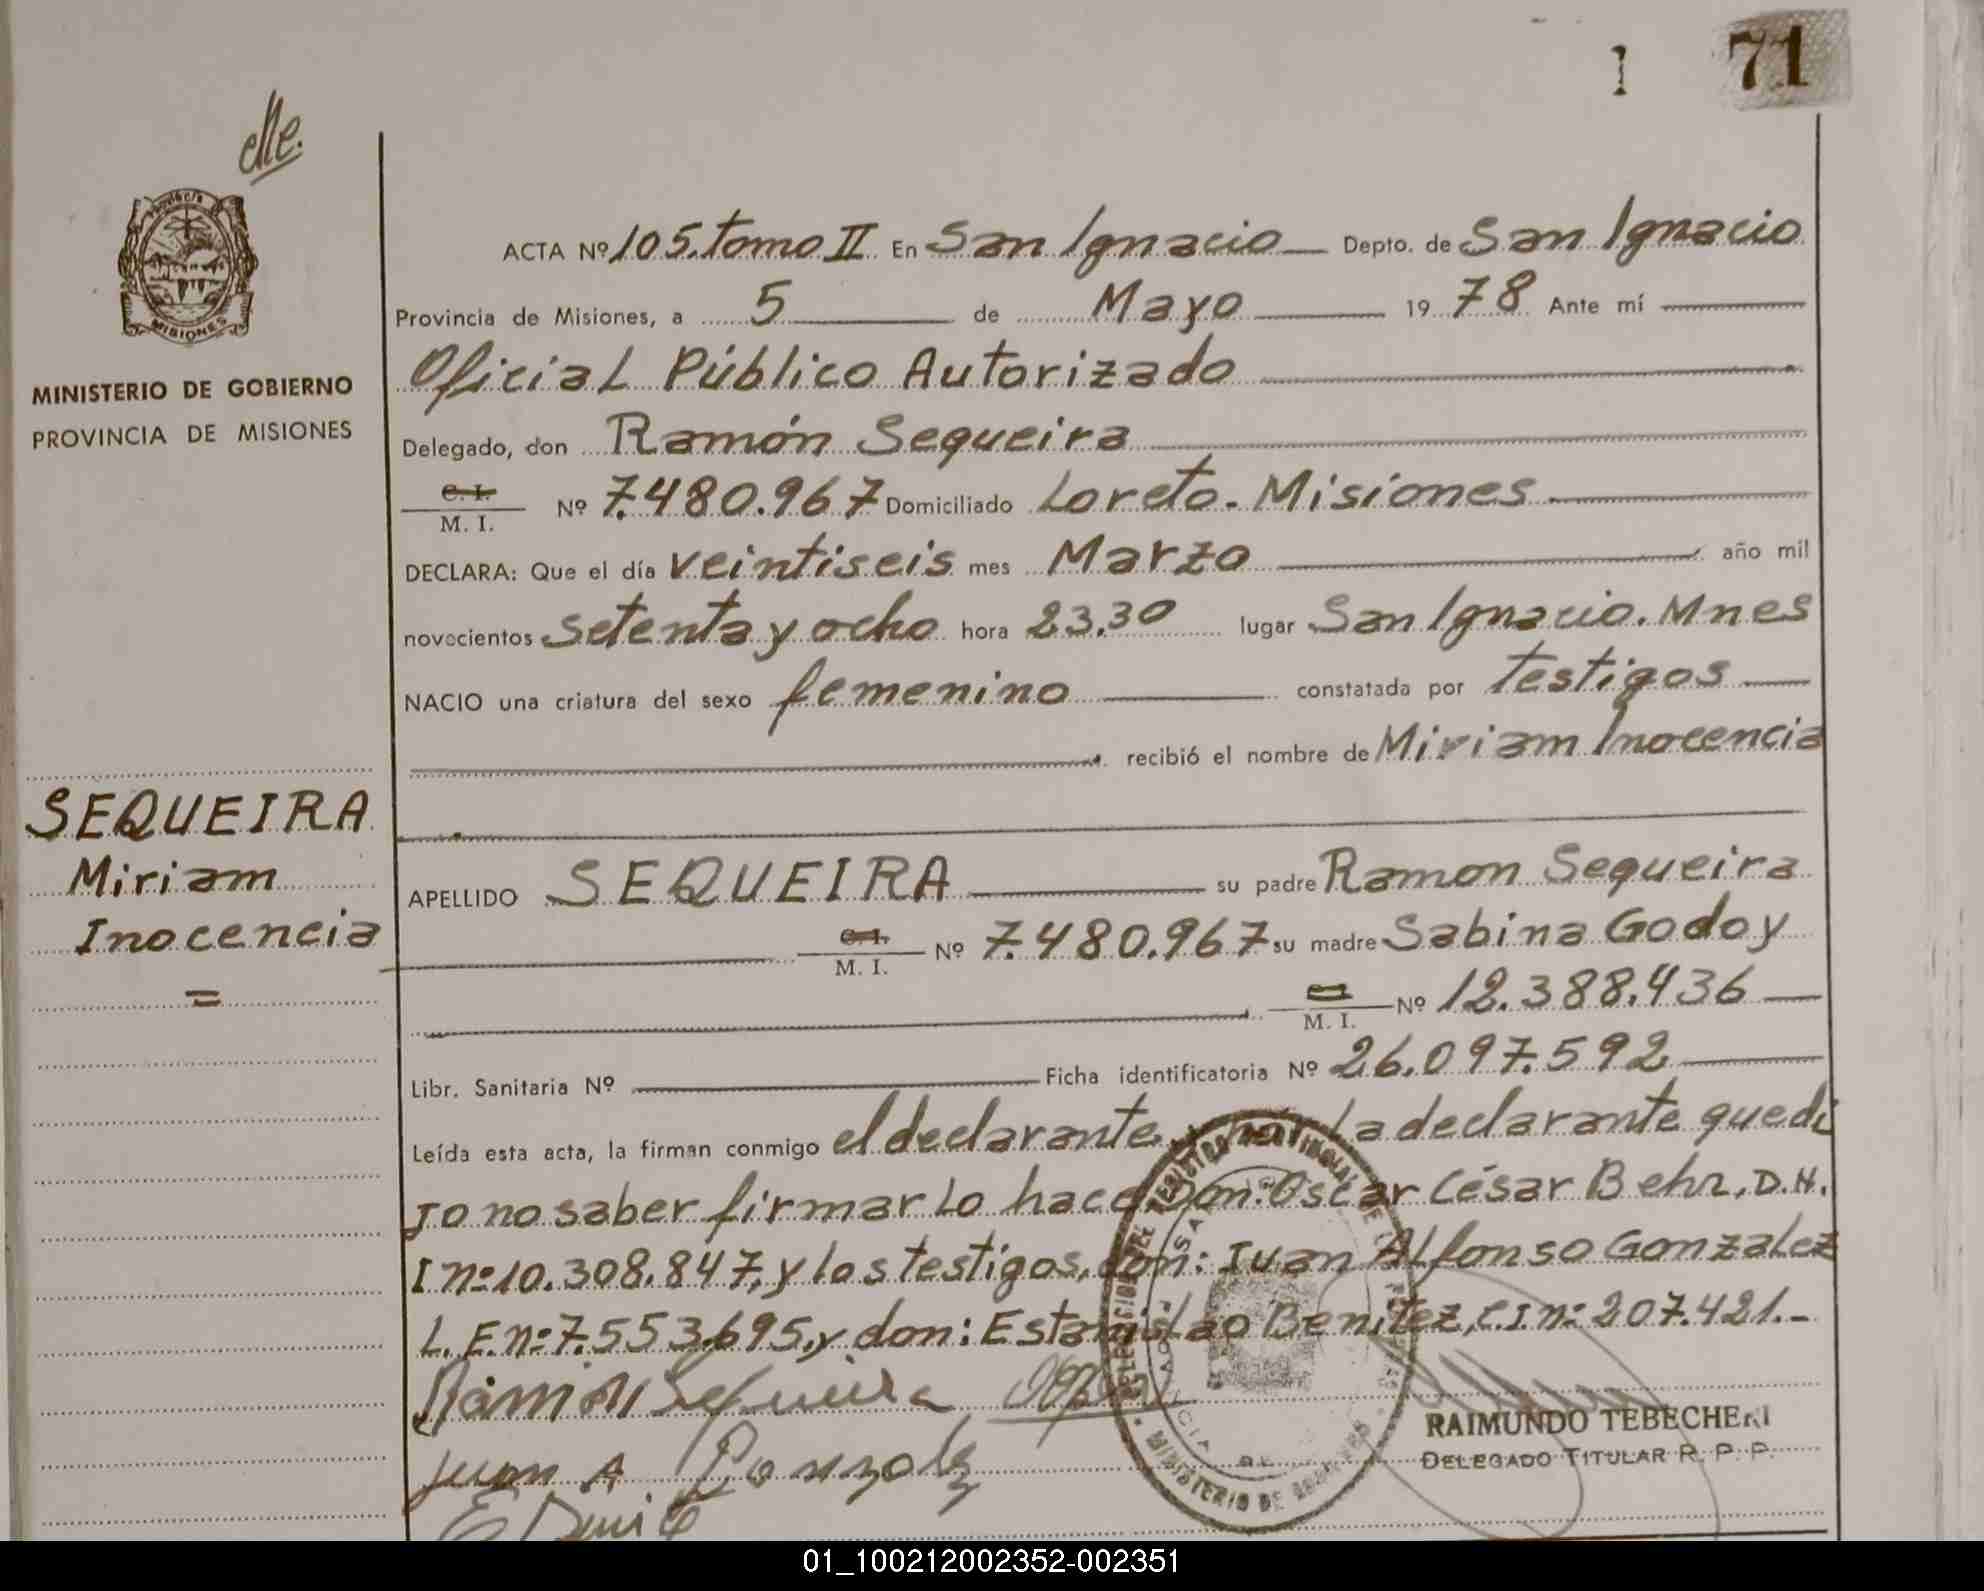 1 71
elle.
Provincia de
MISIONES
MINISTERIO DE GOBIERNO
PROVINCIA DE MISIONES
ACTA Nº 105. tomo II En San Ignacio Depto. de San Ignacio
Provincia de Misiones, a 5 de Mayo 19 78 Ante mí
Oficial Público Autorizado
Delegado, don Ramón Sequeira
C. I.
M. I. Nº 7.480.967 Domiciliado Loreto. Misiones
DECLARA: Que el día veintiseis mes Marzo año mil
novecientos setenta y ocho hora 23.30 lugar San Ignacio. Mnes
NACIO una criatura del sexo femenino constatada por testigos
recibió el nombre de Miriam Inocencia
SEQUEIRA
Miriam
Inocencia
=
APELLIDO SEQUEIRA su padre Ramon Sequeira
C. I.
M. I. Nº 7.480.967 su madre Sabina Godoy
M. I. Nº 12.388.436
Libr. Sanitaria Nº Ficha identificatoria Nº 26.097.592
Leída esta acta, la firman conmigo el declarante y por la declarante que di
jo no saber firmar lo hace Don: Oscar César Behr, D.N.
I nº 10.308.847, y los testigos, don: Juan Alfonso Gonzalez
L.E. nº 7.553.695, y don: Estanislao Benitez, C.I. nº 207.421.-
Ramon Sequeira
Juan A Gonzalez
RAIMUNDO TEBECHERI
DELEGADO TITULAR R. P. P.
MINISTERIO DE
01_100212002352-002351